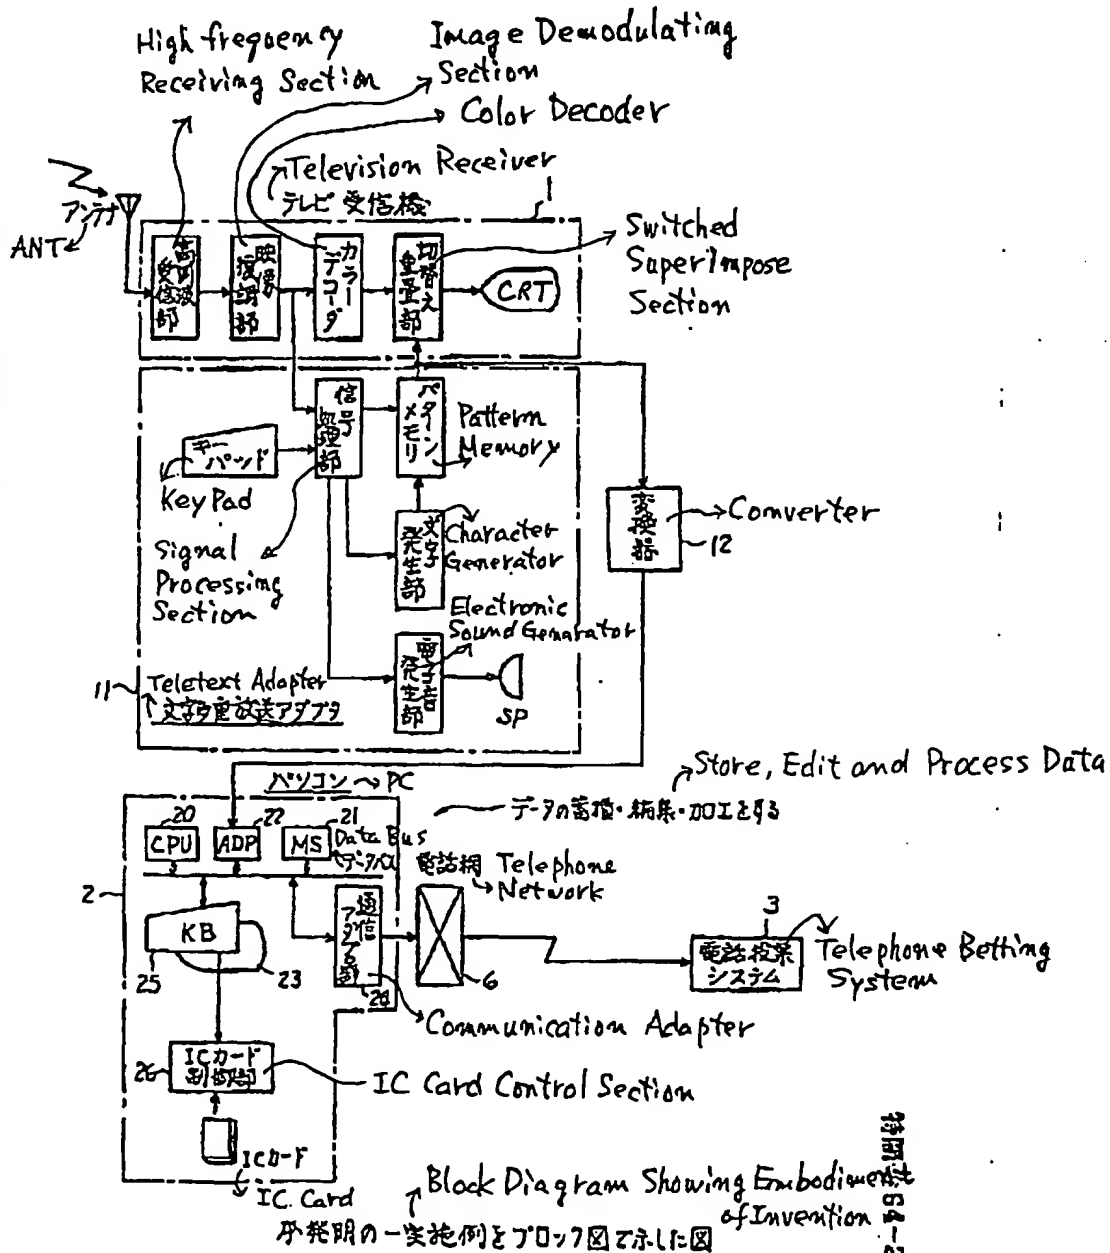 High frequency
Receiving Section
Image Demodulating
Section
Color Decoder
Television Receiver
テレビ受信機
1
アンテナ
ANT
受信部
復調部
カラー
デコーダ
切替え
重畳部
CRT
Switched
Superimpose
Section
信号
処理部
パターン
メモリ
Pattern
Memory
キー
パッド
KeyPad
Signal
Processing
Section
文字
発生部
Character
Generator
変換器
Converter
12
Electronic
Sound Genarator
電子音
発生部
SP
11
Teletext Adapter
文字多重放送アダプタ
Store, Edit and Process Data
パソコン
PC
データの蓄積・編集・加工をする
20
22
21
CPU
ADP
MS
Data Bus
データバス
電話網
Telephone
Network
2
KB
25
23
通信
6
3
電話投票
システム
Telephone Betting
System
Communication Adapter
26
ICカード
制御部
IC Card Control Section
ICカード
IC. Card
Block Diagram Showing Embodiment
of Invention
発明の一実施例をブロック図で示した図